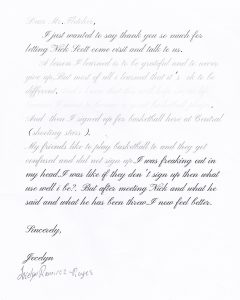 Dear Mr. Fletcher,
I just wanted to say thank you so much for
letting Nick Scott come visit and talk to us.
A lesson I learned is to be grateful and to never
give up. But most of all I learned that it's ok to be
different.
And then I signed up for basketball here at Central
(shooting stars).
My friends like to play basketball to and they get
confused and did not sign up. I was freaking out in
my head. I was like if they don't sign up then what
use well i be?. But after meeting Nick and what he
said and what he has been threw I now feel better.
Sincerely,
Jocelyn